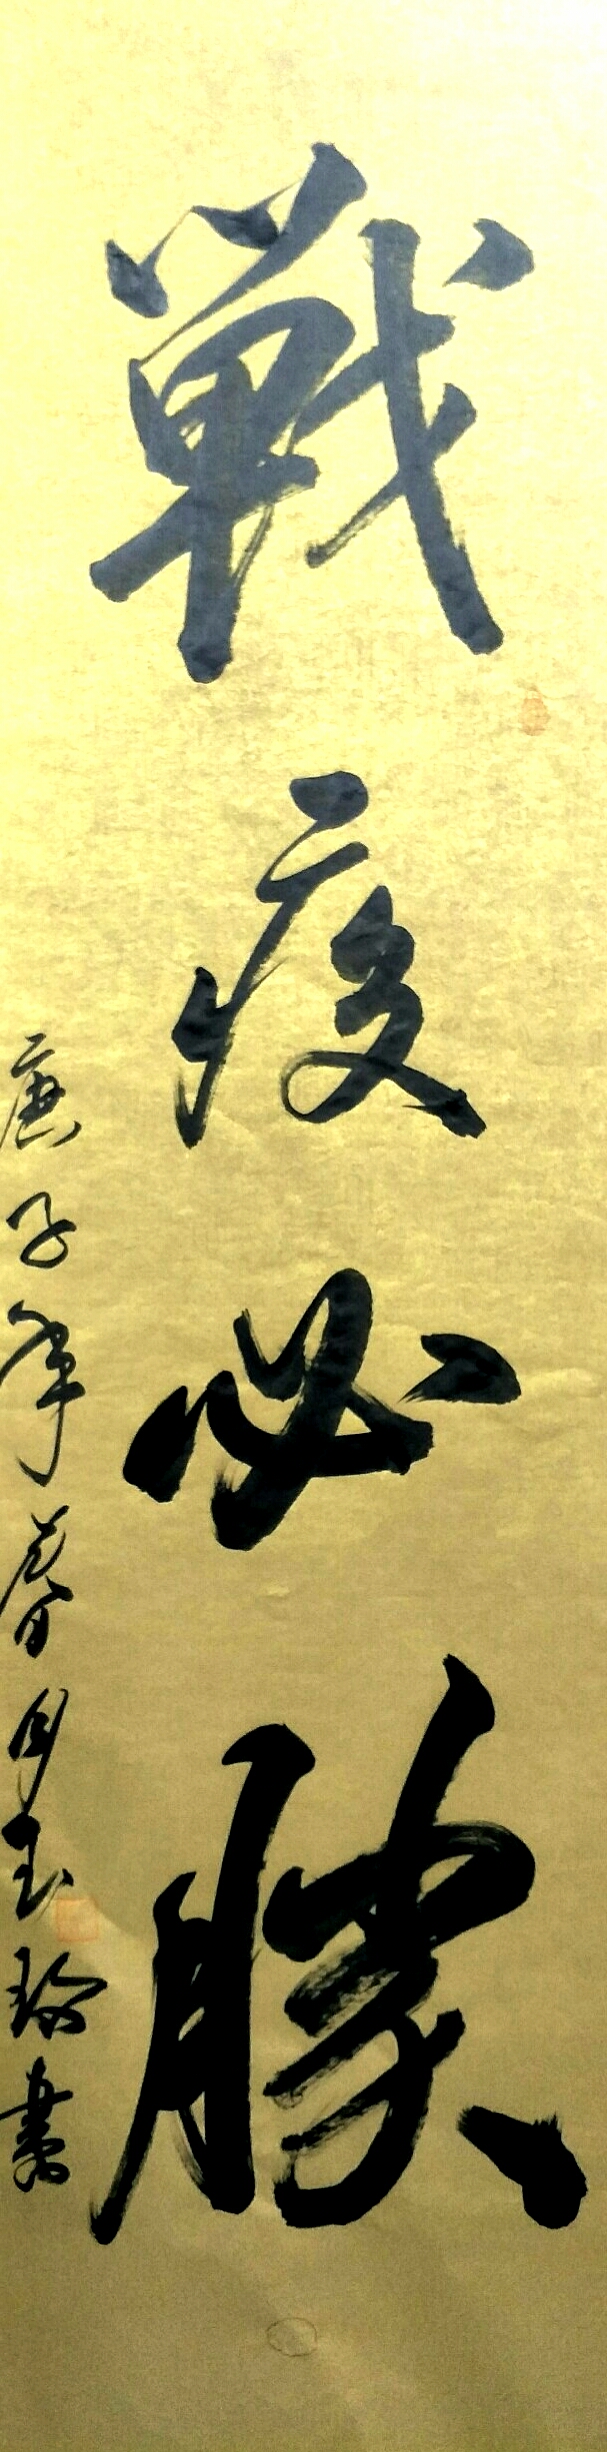 戰疫必勝
庚子年春月玉珍書